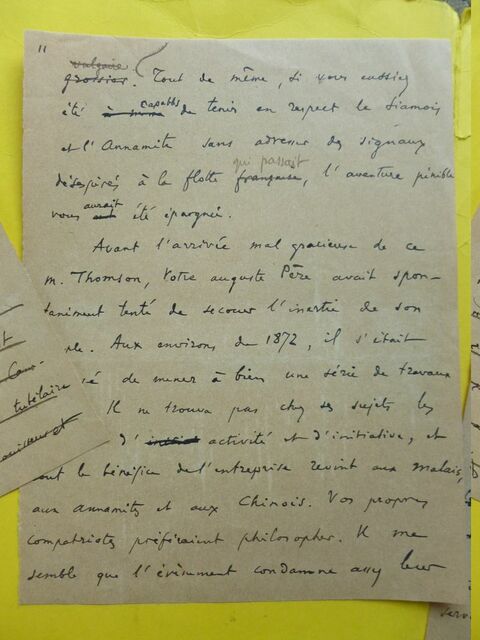 11
vulgaire
grossier. Tout de même, si vous eussiez
été capables de tenir en respect le Siamois
et l'Annamite sans adresser des signaux
qui passait
désespérés à la flotte française, l'aventure pénible
vous aurait été épargnée.
Avant l'arrivée mal gracieuse de ce
M. Thomson, Votre auguste Père avait spon-
tanément tenté de secouer l'inertie de son
ple. Aux environs de 1872, il s'était
é de mener à bien une série de travaux
Il ne trouva pas chez ses sujets les
d' activité et d'initiative, et
out le bénéfice de l'entreprise revint aux malais,
aux annamites et aux Chinois. Vos propres
compatriotes préféraient philosopher. Il me
semble que l'évènement condamne assez leur
tutélaire